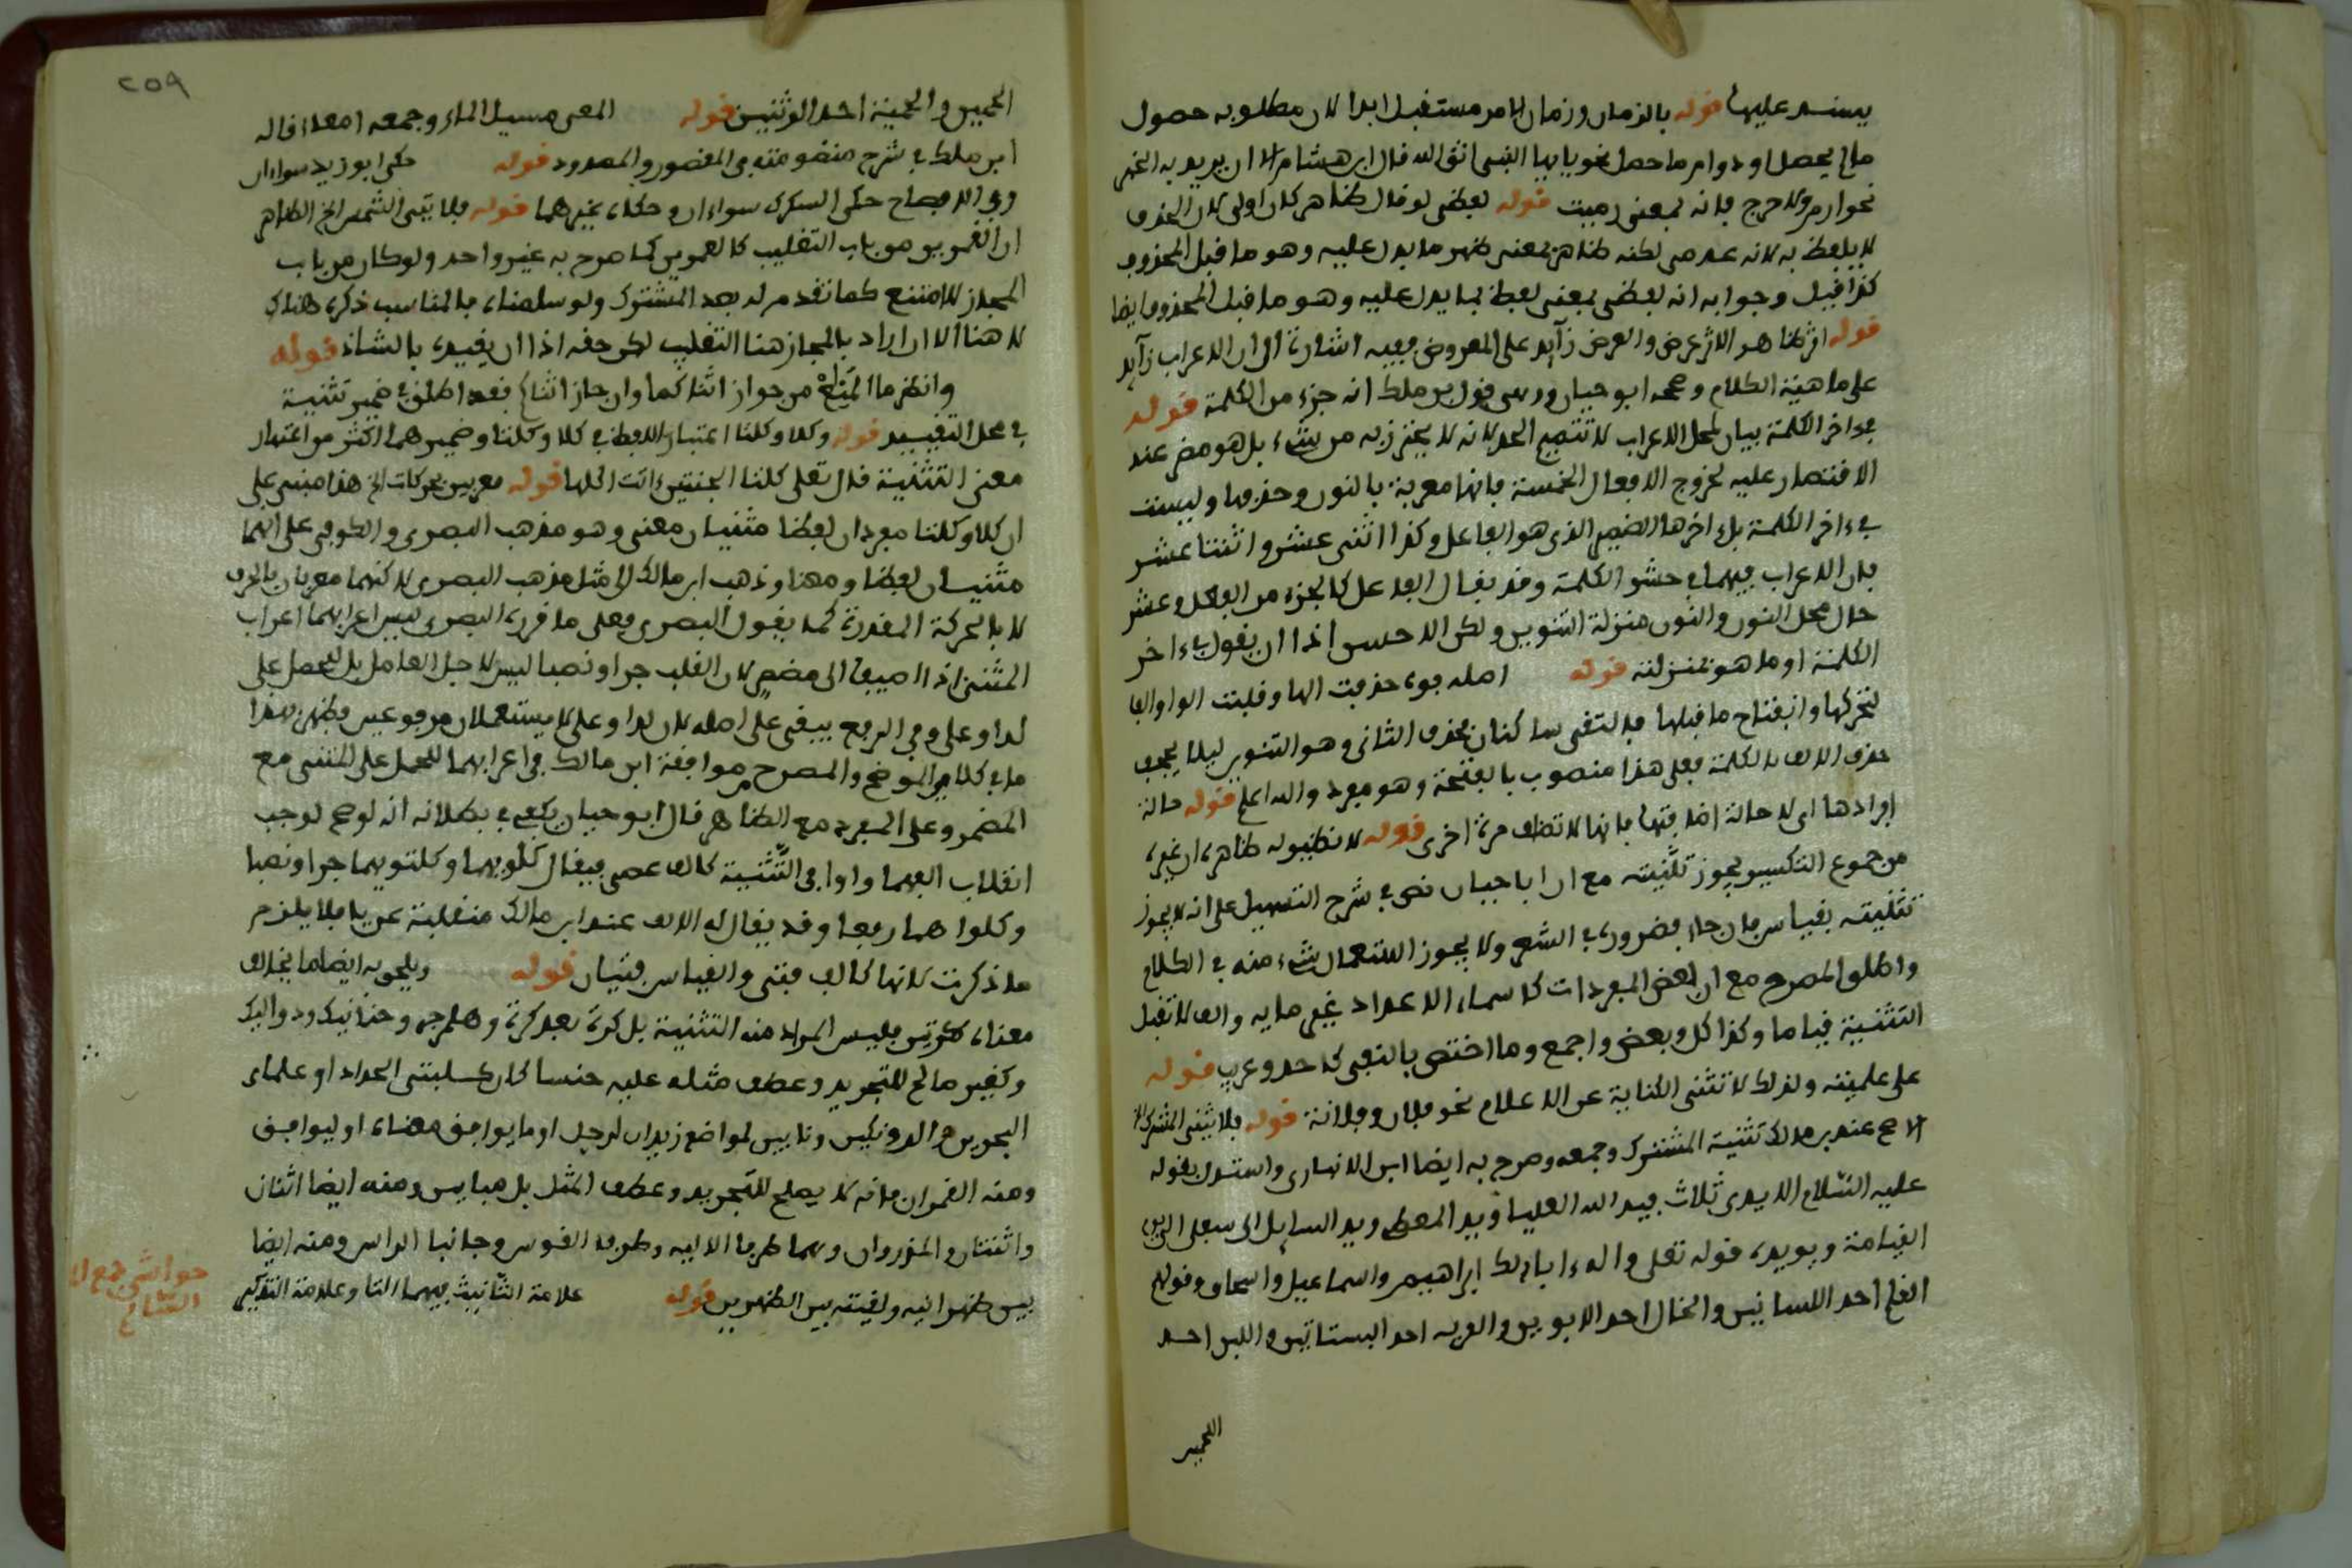 يسند عليها قوله بالزمان وزمان الامر مستقبل ابدا لان مطلوبه حصول
مالم يحصل او دوام ما حصل نحو يايها النبي اتق الله قال ابن هشام الا ان يريد به الخبر
نحو ارم ولا حرج فانه بمعنى رميت قوله لفظي لو قال ظاهر كان اولى لان الحذف
لا يلفظ به لانه عدمي لكنه ظاهر بمعنى ظهر ما يدل عليه وهو ما قبل المحذوف
كذا قيل وجوابه انه لفظي بمعنى لفظ بما يدل عليه وهو ما قبل المحذوف ايضا
قوله اثر ظاهر الاثر عرض والعرض زآيد على المعروض ففيه اشارة الى ان الاعراب زآيد
على ماهية الكلام وصححه ابو حيان ورد في قول بن ملك انه جزء من الكلمة قوله
في ءاخر الكلمة بيان لمحل الاعراب لا تتميم الحد لانه لا يحترز به من شيء بل هو مضر عند
الاقتصار عليه لخروج الافعال الخمسة فانها معربة بالنون وحذفها وليست
في ءاخر الكلمة بل ءاخرها الضمير الذي هو الفاعل وكذا اثنى عشر واثنتا عشر
فان الاعراب فيهما في حشو الكلمة وقد يقال الفاعل كالجزء من الفعل وعشر
حال محل النون والنون منزلة التنوين ولكن الاحسن اذا ان يقول في ءاخر
الكلمة او ما هو بمنزلته قوله اصله فوه حذفت الها وقلبت الواو الفا
لتحركها وانفتاح ما قبلها فالتقى ساكنان بحذف الثاني وهو التنوين ليلا يجحف
حذف الالف بالكلمة فعلى هذا منصوب بالفتحة وهو مفرد والله اعلم قوله حالة
افرادها اي لا حالة اضافتها فانها لا تضاف مرة اخرى قوله لا نظير له ظاهره ان غيره
من جموع التكسير يجوز تثنيته مع ان ابا حيان نص في شرح التسهيل على انه لا يجوز
تثنيته بقياس فان جاء فضرورة في الشعر ولا يجوز استعمال شيء منه في الكلام
واطلق المصرح مع ان بعض المفردات كاسماء الاعداد غير مايه والف لا تقبل
التثنية قياما وكذا كل وبعض واجمع وما اختص بالنفي كاحد وعريب قوله
على علميته ولذلك لا تثنى الكناية عن الاعلام نحو فلان وفلانة قوله فلا يثنى المشترك الخ
الاصح عند بن مالك تثنية المشترك وجمعه وصرح به ايضا ابن الانباري واستدل بقوله
عليه السّلام الايدي ثلاث فيد الله العليا ويد المعطي ويد السايل السفلى الى يوم
القيامة ويويده قوله تعلى واله ءابائك ابراهيم واسماعيل واسحاق وقولهم
القلم احد اللسانين والخال احد الابوين والغربه احد البستانين واللبن احد
اللحمين
٢٥٩
اللحمين والحمية احد الموتتين قوله المعى مسيل الماء وجمعه امعاء قاله
ابن ملك في شرح منظومته في المقصور والممدود قوله حكى ابو زيد سواءان
وفي الافصاح حكى السكري سواءان وحكاه غيرهما قوله فلا يثنى الشمس الخ الظاهر
ان القمرين من باب التغليب كالعمرين كما صرح به غير واحد ولو كان من باب
المجاز لامتنع كما تقدم له بعد المشترك ولو سلمناه فالمناسب ذكره هناك
لا هنا الا ان اراد بالمجاز هنا التغليب لكن حقه اذا ان يقيده بالشاذ قوله
وانظر ما المانع من جواز اثناكما وان جاز اثناك فقد اطلق في ضمير تثنية
في محل التقييد قوله وكلا وكلتا اعتبار اللفظ في كلا وكلتا وضميرهما اكثر من اعتبار
معنى التثنية قال تعلى كلتا الجنتين ءاتت اكلها قوله معربين بحركات الخ هذا مبني على
ان كلا وكلتا مفردان لفظا مثنيان معنى وهو مذهب البصري والكوفي على انهما
مثنيان لفظا ومعنا وذهب ابن مالك الى مثل مذهب البصري لاكنهما معربان بالحرف
لا بالحركة المقدرة كما يقول البصري فعلى ما قرره البصري ليس اعرابهما اعراب
المثنى اذا اضيفا الى مضمر لان القلب جرا ونصبا ليس لاجل العامل بل للحمل على
لدا وعلى وفي الرفع يبقى على اصله لان لدا وعلى لا يستعملان مرفوعين فظهر بهذا
ما في كلام الموضح والمصرح من موافقة ابن مالك في اعرابهما للحمل على المثنى مع
المضمر وعلى المفرد مع الظاهر قال ابو حيان يكفي في بطلانه انه لو صح لوجب
انقلاب الفهما واوا في التّثنية كالف عصى فيقال كلويهما وكلتويهما جرا ونصبا
وكلواهما رفعا وقد يقال له الالف عند ابن مالك منقلبة عن يا فلا يلزم
ما ذكرت لانها كالف فتى والقياس فتيان قوله ويلحق به ايضا ما يخالف
معناه كرتين فليس المراد منه التثنية بل كرة بعد كرة وهلم جرا وحنانيك ودواليك
وكغير صالح للتجريد وعطف مثله عليه جنسا كان كسلبتي الحداد او علما كـ
البحرين والدونكين ونابين لمواضع زيدان لرجل او ما يوافق معناه او ليوافق
ومنه القمران فانه لا يصلح للتجريد وعطف المثل بل مباين ومنه ايضا اثنان
واثنتان والمذروان وهما طرفا الالية وطرفا القوس وجانبا الراس ومنه ايضا
بين ظهرانيه ولقيته بين الظهرين قوله علامة التّانيث فيهما التا وعلامة التذكير
حواشي جمع ا
السالم